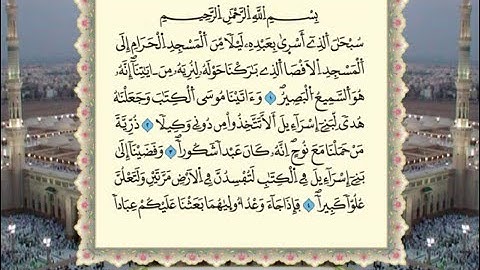 بِسْمِ اللَّهِ الرَّحْمَٰنِ الرَّحِيمِ
سُبْحَٰنَ اَ۬لذِےٓ أَسْر۪يٰ بِعَبْدِهِۦ لَيْلاٗ مِّنَ اَ۬لْمَسْجِدِ اِ۬لْحَرَامِ إِلَي
اَ۬لْمَسْجِدِ اِ۬لَاقْصَا اَ۬لذِے بَٰرَكْنَا حَوْلَهُۥ لِنُرِيَهُۥ مِنَ ـايَٰتِنَآۖ إِنَّهُۥ
هُوَ اَ۬لسَّمِيعُ اُ۬لْبَصِيرُۖ ١ وَءَاتَيْنَا مُوسَي اَ۬لْكِتَٰبَ وَجَعَلْنَٰهُ
هُديٗ لِّبَنِےٓ إِسْرَآءِيلَ أَلَّا تَتَّخِذُواْ مِن دُونِے وَكِيلاٗۖ ٢ ذُرِّيَّةَ
مَنْ حَمَلْنَا مَعَ نُوحٍۖ اِنَّهُۥ كَانَ عَبْداٗ شَكُوراٗۖ ٣ وَقَضَيْنَآ إِلَيٰ
بَنِےٓ إِسْرَآءِيلَ فِے اِ۬لْكِتَٰبِ لَتُفْسِدُنَّ فِے اِ۬لَارْضِ مَرَّتَيْنِ وَلَتَعْلُنَّ
عُلُوّاٗ كَبِيراٗۖ ٤ فَإِذَا جَآءَ وَعْدُ أُول۪يٰهُمَا بَعَثْنَا عَلَيْكُمْ عِبَاداٗ